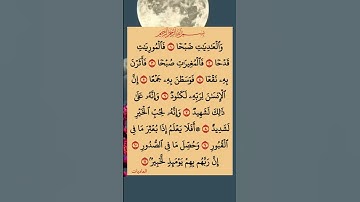 بسم الله الرحمن الرحيم
وَٱلْعَٰدِيَٰتِ ضَبْحًا ۝١ فَٱلْمُورِيَٰتِ
قَدْحًا ۝٢ فَٱلْمُغِيرَٰتِ صُبْحًا ۝٣ فَأَثَرْنَ
بِهِۦ نَقْعًا ۝٤ فَوَسَطْنَ بِهِۦ جَمْعًا ۝٥ إِنَّ
ٱلْإِنسَٰنَ لِرَبِّهِۦ لَكَنُودٌ ۝٦ وَإِنَّهُۥ عَلَىٰ
ذَٰلِكَ لَشَهِيدٌ ۝٧ وَإِنَّهُۥ لِحُبِّ ٱلْخَيْرِ
لَشَدِيدٌ ۝٨ ۞ أَفَلَا يَعْلَمُ إِذَا بُعْثِرَ مَا فِى
ٱلْقُبُورِ ۝٩ وَحُصِّلَ مَا فِى ٱلصُّدُورِ ۝١٠
إِنَّ رَبَّهُم بِهِمْ يَوْمَئِذٍ لَّخَبِيرٌۢ ۝١١
العاديات